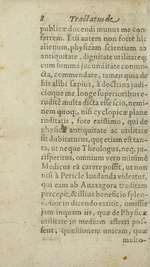 8 Tractatus de
publicæ docendi munus me con-
ferrem. Est autem non forte hic
alienum, physicam scientiam ab
antiquitate, dignitate utilitateq;
cum summa jucunditate conjun-
cta, commendare, tamen quia de
his aliàs sæpius, à doctissimis judi-
cioque me longè superioribus e-
ruditè multa dicta esse scio, nemi-
nem quoq; nisi cyclopicæ planè
ruditatis, foro existimo, qui de
physicæ antiquitate ac utilitate
sit dubitaturus, quæ etiam est tan-
ta, ut neque Theologus, neq; ju-
risperitus, omnium verò minimè
Medicus eâ carere possit, ut non
nisi à Pericle laudanda videatur,
qui eam ab Anaxagora traditam
percepit, & istius beneficio splen-
in dicendo emicuit, omissis
jam inquam iis, quæ de Physicæ
utilitate in medium afferri pos-
sent, quæstionem unicam, quæ
multo-